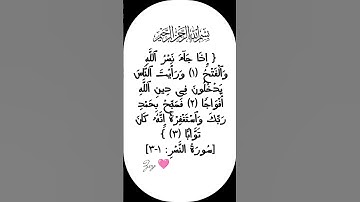 بسم الله الرحمن الرحيم
{ إِذَا جَآءَ نَصْرُ ٱللَّهِ
وَٱلْفَتْحُ (١) وَرَأَيْتَ ٱلنَّاسَ
يَدْخُلُونَ فِي دِينِ ٱللَّهِ
أَفْوَاجًا (٢) فَسَبِّحْ بِحَمْدِ
رَبِّكَ وَٱسْتَغْفِرْهُ إِنَّهُۥ كَانَ
تَوَّابًا (٣) }
[سُورَةُ النَّصْرِ: ١-٣]